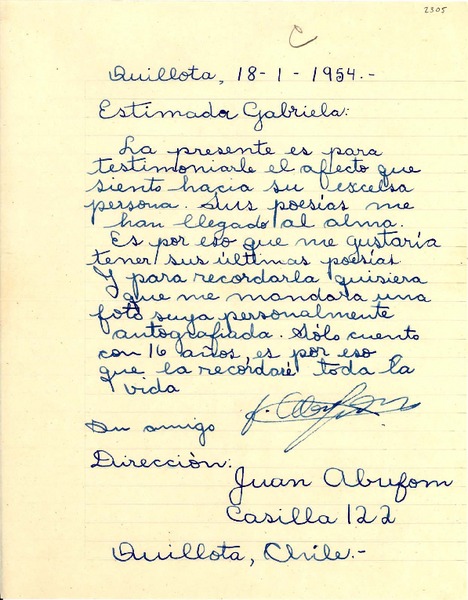 2305
C
Quillota, 18-1-1954.-
Estimada Gabriela:
La presente es para
testimoniarle el afecto que
siento hacia su excelsa
persona. Sus poesías me
han llegado al alma.
Es por eso que me gustaría
tener sus últimas poesías
Y para recordarla quisiera
que me mandara una
foto suya personalmente
autografiada. Sólo cuento
con 16 años, es por eso
que la recordaré toda la
vida
Su amigo
Dirección:
Juan Abufom
Casilla 122
Quillota, Chile.-